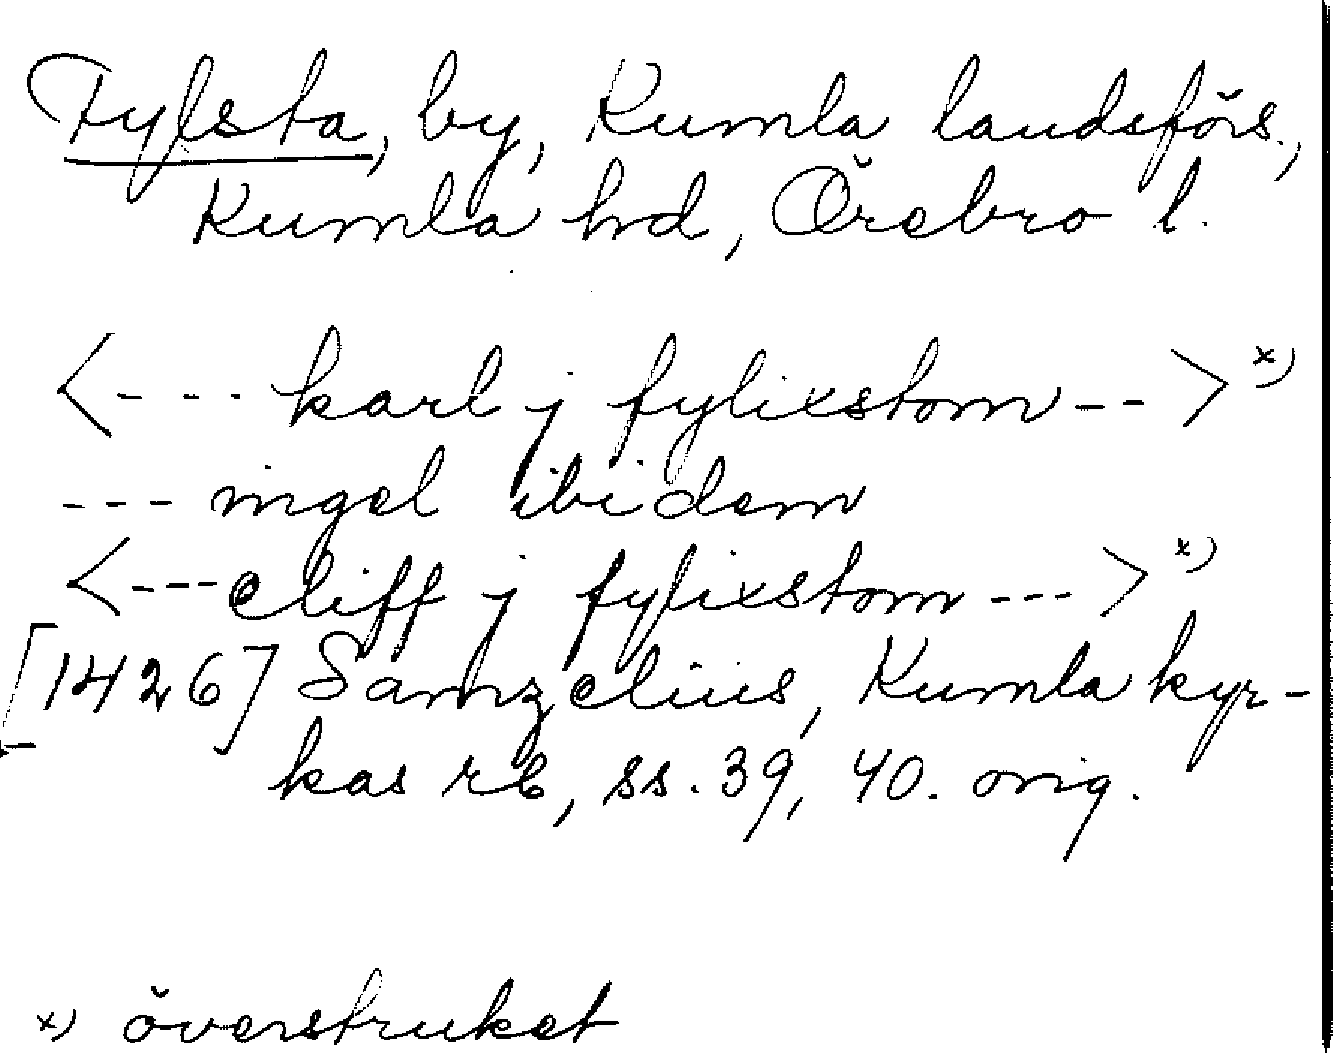 Fylsta, by, Kumla landsförs.,
Kumla hd, Örebro l.
<--- karl j fylixstom -- > x)
--- ingel ibidem
<--- eliff j fylixstom --- > x)
[1426] Samzelius, Kumla kyr-
kas rb, ss. 39, 40. orig.
x) överstruket